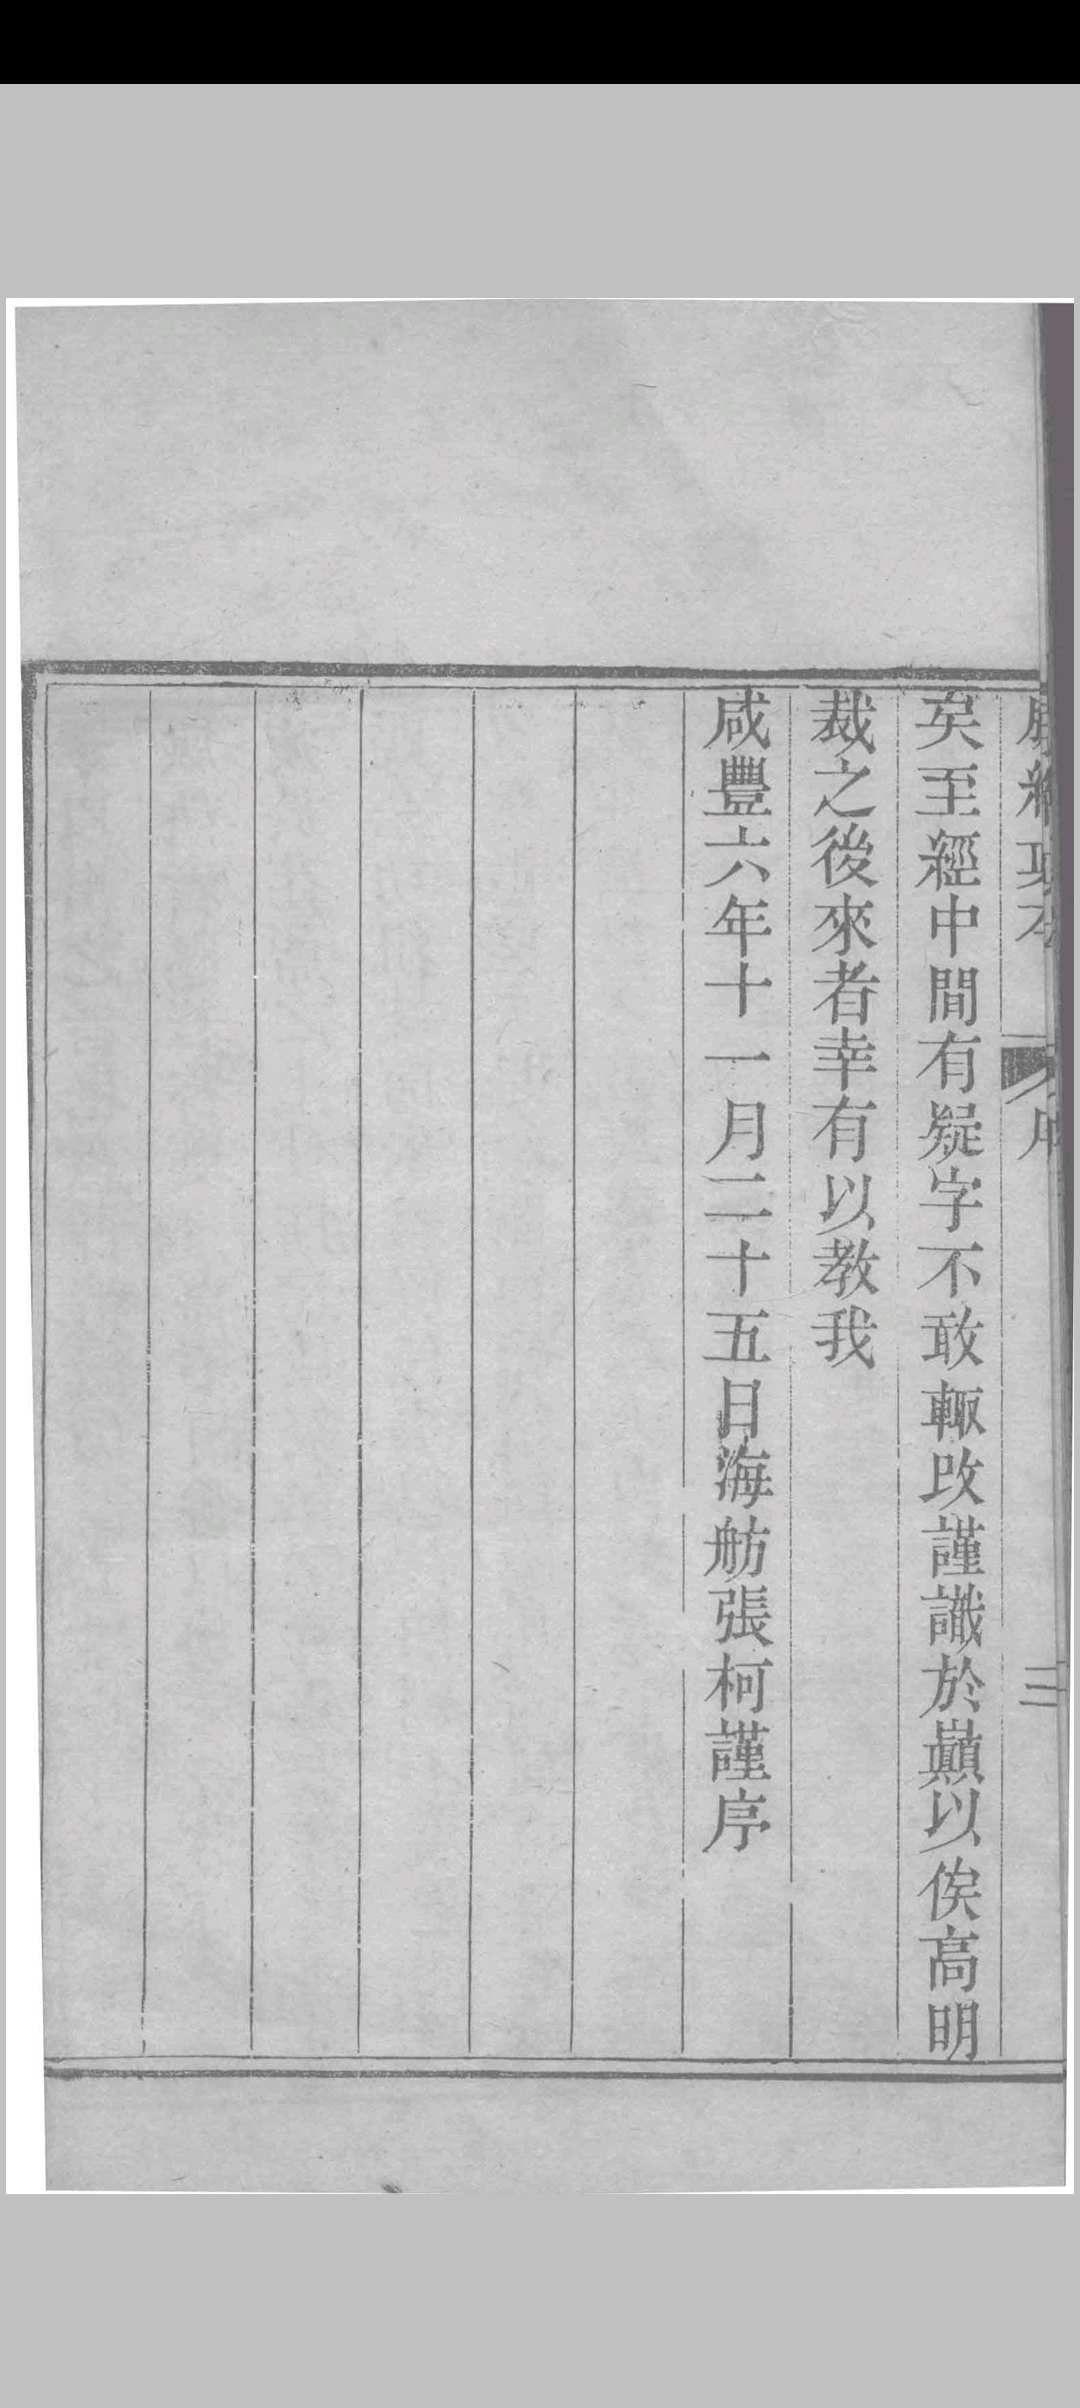 序
三
矣至經中間有疑字不敢輙改謹識於巔以俟高明
裁之後來者幸有以教我
咸豐六年十一月二十五日海舫張柯謹序